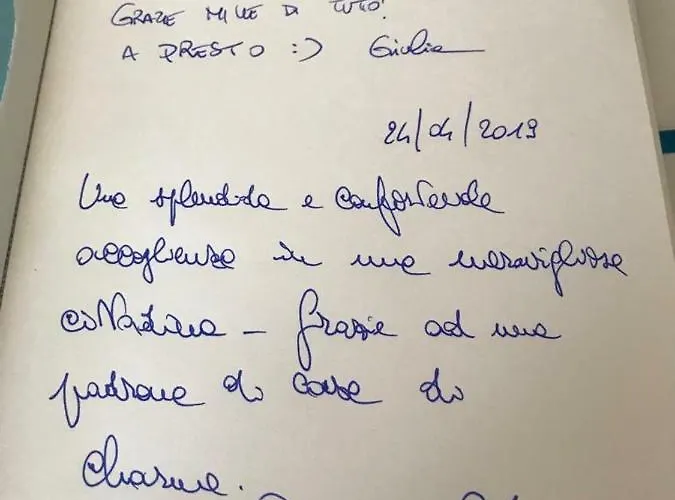 GRAZIE MILLE DI TUTTO!
A PRESTO :) Giulia
24/04/2019
Una splendida e confortevole
accoglienza in una meravigliosa
cittadina – Grazie ad una
padrona di casa di
charme.